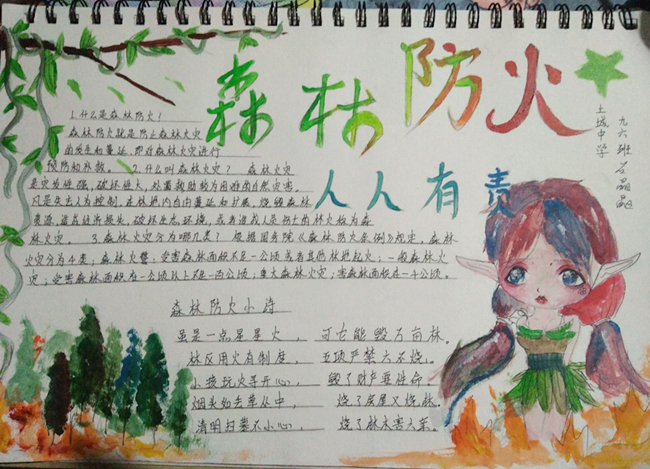 森林防火
人人有责
土城中学
九六班
1.什么是森林防火？
森林防火就是防止森林火灾
的发生和蔓延，即对森林火灾进行
预防和扑救。 2.什么叫森林火灾？ 森林火灾
是突发性强，破坏性大，处置救助较为困难的自然灾害。
凡是失去人为控制，在林地内自由蔓延和扩展，烧毁森林
资源，造成经济损失，破坏生态环境，或者造成人员伤亡的林火称为森
林火灾。 3.森林火灾分为哪几类？ 根据国务院《森林防火条例》规定，森林
火灾分为4类：森林火警：受害森林面积不足一公顷或者其他林地起火；一般森林火
灾：受害森林面积在一公顷以上不足一百公顷；重大森林火灾：害森林面积在一千公顷。
森林防火小诗
虽是一点星星火， 可它能毁万亩林。
林区用火有制度， 五项严禁六不烧。
小孩玩火寻开心， 毁了财产要性命
烟头如去草丛中， 烧了房屋又烧林。
清明扫墓不小心， 烧了林木害人家。